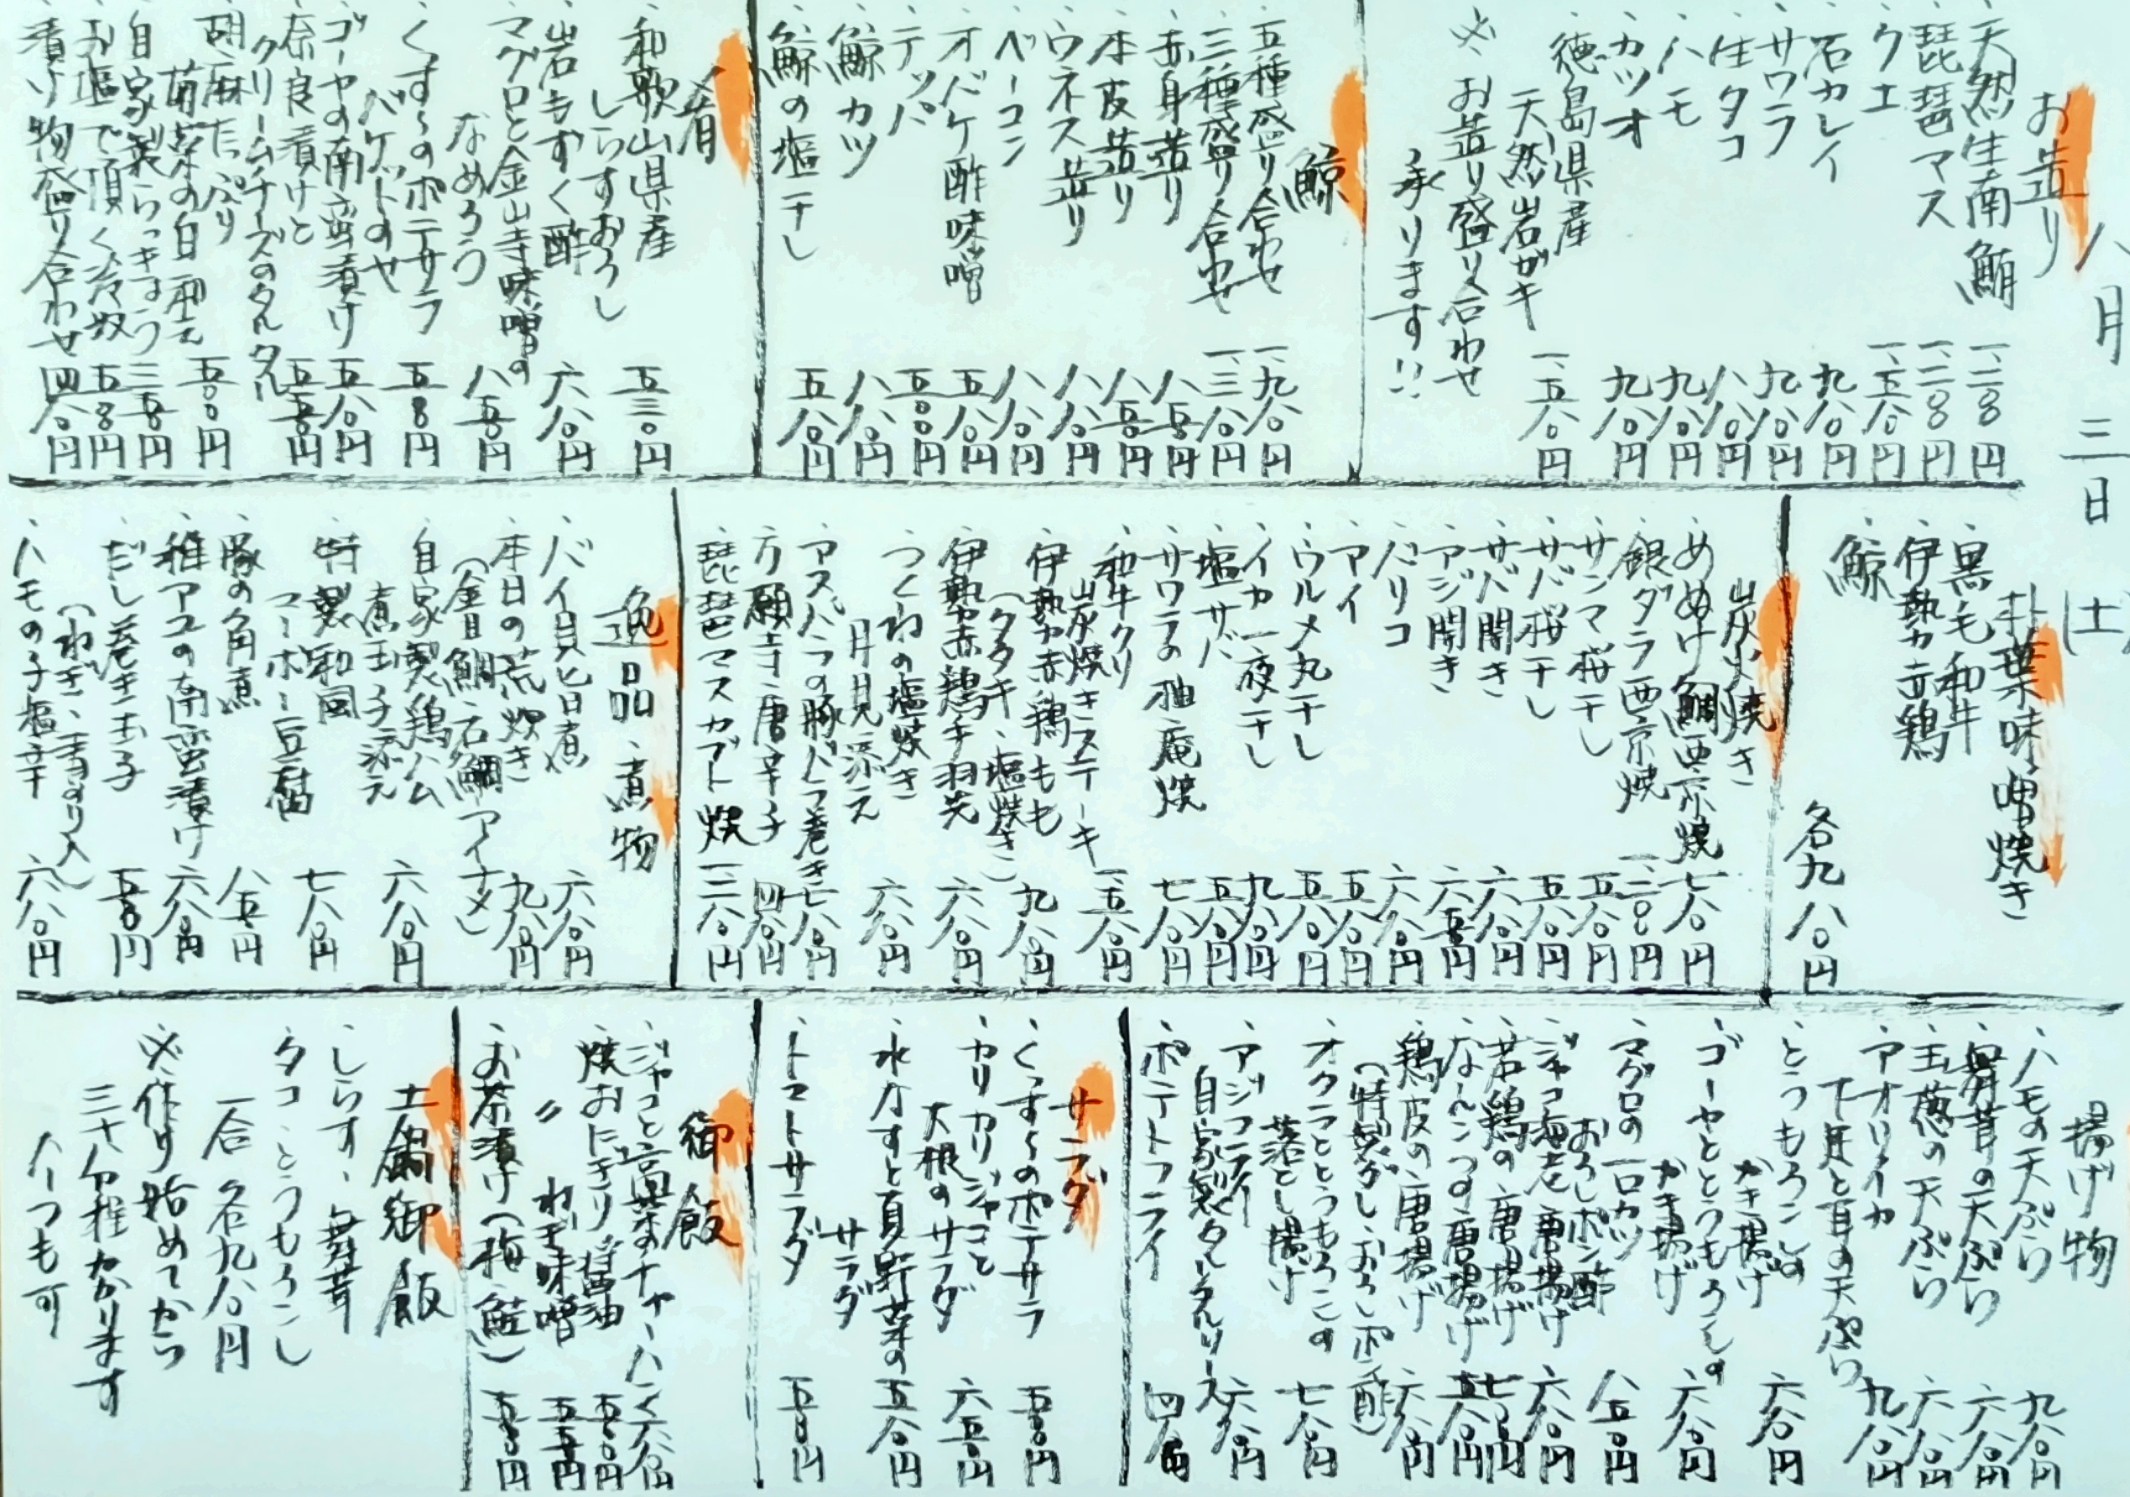 八月三日(土)
お造り
天然生南鮪 一、二八〇円
琵琶マス 一、二八〇円
クエ 一、五八〇円
石カレイ 九八〇円
サワラ 九八〇円
生タコ 八八〇円
ハモ 九八〇円
カツオ 九八〇円
徳島県産
天然岩ガキ 一、五八〇円
※お造り盛り合わせ
承ります!!
鯨
五種盛り合わせ 一、九八〇円
三種盛り合わせ 一、三八〇円
赤身造り 八五〇円
本皮造り 八五〇円
ウネス造り 八八〇円
ベーコン 八八〇円
オバケ酢味噌 五八〇円
テッパ 五五〇円
鯨カツ 八八〇円
鯨の塩干し 五八〇円
肴
和歌山県産
しらすおろし 五三〇円
岩もずく酢 六八〇円
マグロと金山寺味噌の
なめろう 八五〇円
くす〜のポテサラ
バケットのせ 五五〇円
ゴーヤの南蛮漬け 五八〇円
奈良漬けと
クリームチーズのタルタル 五五〇円
胡麻たっぷり
菊菜の白和え 五五〇円
自家製らっきょう 三五〇円
お塩で頂く冷奴 五五〇円
漬け物盛り合わせ 四八〇円
朴葉味噌焼き
黒毛和牛
伊勢赤鶏
鯨
各九八〇円
炭火焼き
めぬけ鯛西京焼 七八〇円
銀ダラ西京焼 一、二八〇円
サンマ桜干し 五八〇円
サバ桜干し 五八〇円
サバ開き 六八〇円
アジ開き 六五〇円
バリコ 六八〇円
アイ 五八〇円
ウルメ丸干し 五八〇円
イカ一夜干し 九八〇円
塩サバ 五八〇円
サワラの柚庵焼 七八〇円
和牛クリ
炭焼きステーキ 一、五八〇円
伊勢赤鶏もも
(タタキ、塩焼き) 九八〇円
伊勢赤鶏手羽先 六八〇円
つくねの塩焼き
月見添え 六八〇円
アスパラの豚バラ巻き 七八〇円
万願寺唐辛子 四八〇円
琵琶マスカブト焼 一、二八〇円
逸品、煮物
バイ貝旨煮 六八〇円
本日の荒炊き
(金目鯛、石鯛、アイナメ) 九八〇円
自家製鶏ハム
煮玉子添え 六八〇円
特製和風
マーボー豆腐 七八〇円
豚の角煮 八五〇円
稚アユの南蛮漬け 六八〇円
だし巻き玉子
(ねぎ、青のり入) 五五〇円
ハモの子塩辛 六八〇円
揚げ物
ハモの天ぷら 九八〇円
舞茸の天ぷら 六八〇円
玉葱の天ぷら 六八〇円
アオリイカ
下足と耳の天ぷら 九八〇円
とうもろこしの
かき揚げ 六八〇円
ゴーヤととうもろこしの
かき揚げ 六八〇円
マグロの一口カツ
おろしポン酢 八五〇円
ジャコ海老唐揚げ 六八〇円
若鶏の唐揚げ 七五〇円
なんこつの唐揚げ 五八〇円
鶏皮の唐揚げ
(特製ダレ・おろしポン酢) 六八〇円
オクラととうもろこしの
落とし揚げ 七八〇円
アジフライ
自家製タルタルソース 六八〇円
ポテトフライ 四八〇円
サラダ
くす〜のポテサラ 五五〇円
カリカリジャコと
大根のサラダ 六五〇円
水ナスと夏野菜の
サラダ 五八〇円
トマトサラダ 五五〇円
御飯
ジャコと高菜のチャーハン 六八〇円
焼おにぎり醤油 五五〇円
〃 ねぎ味噌 五五〇円
お茶漬け(梅、鮭) 五五〇円
土鍋御飯
しらす、舞茸
タコ、とうもろこし
一合 各九八〇円
※作り始めてから
三十分程かかります
ハーフも可